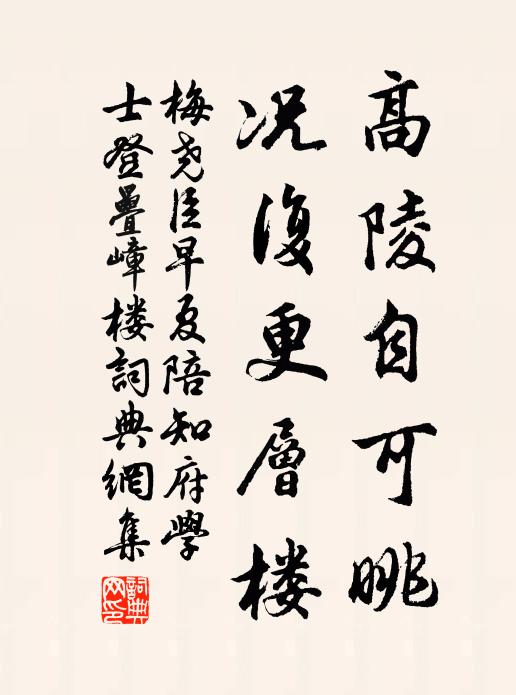 高陵自可眺
况復更層楼
梅尧臣早夏陪知府學
士登疊嶂楼詞典網集
詞典
网印